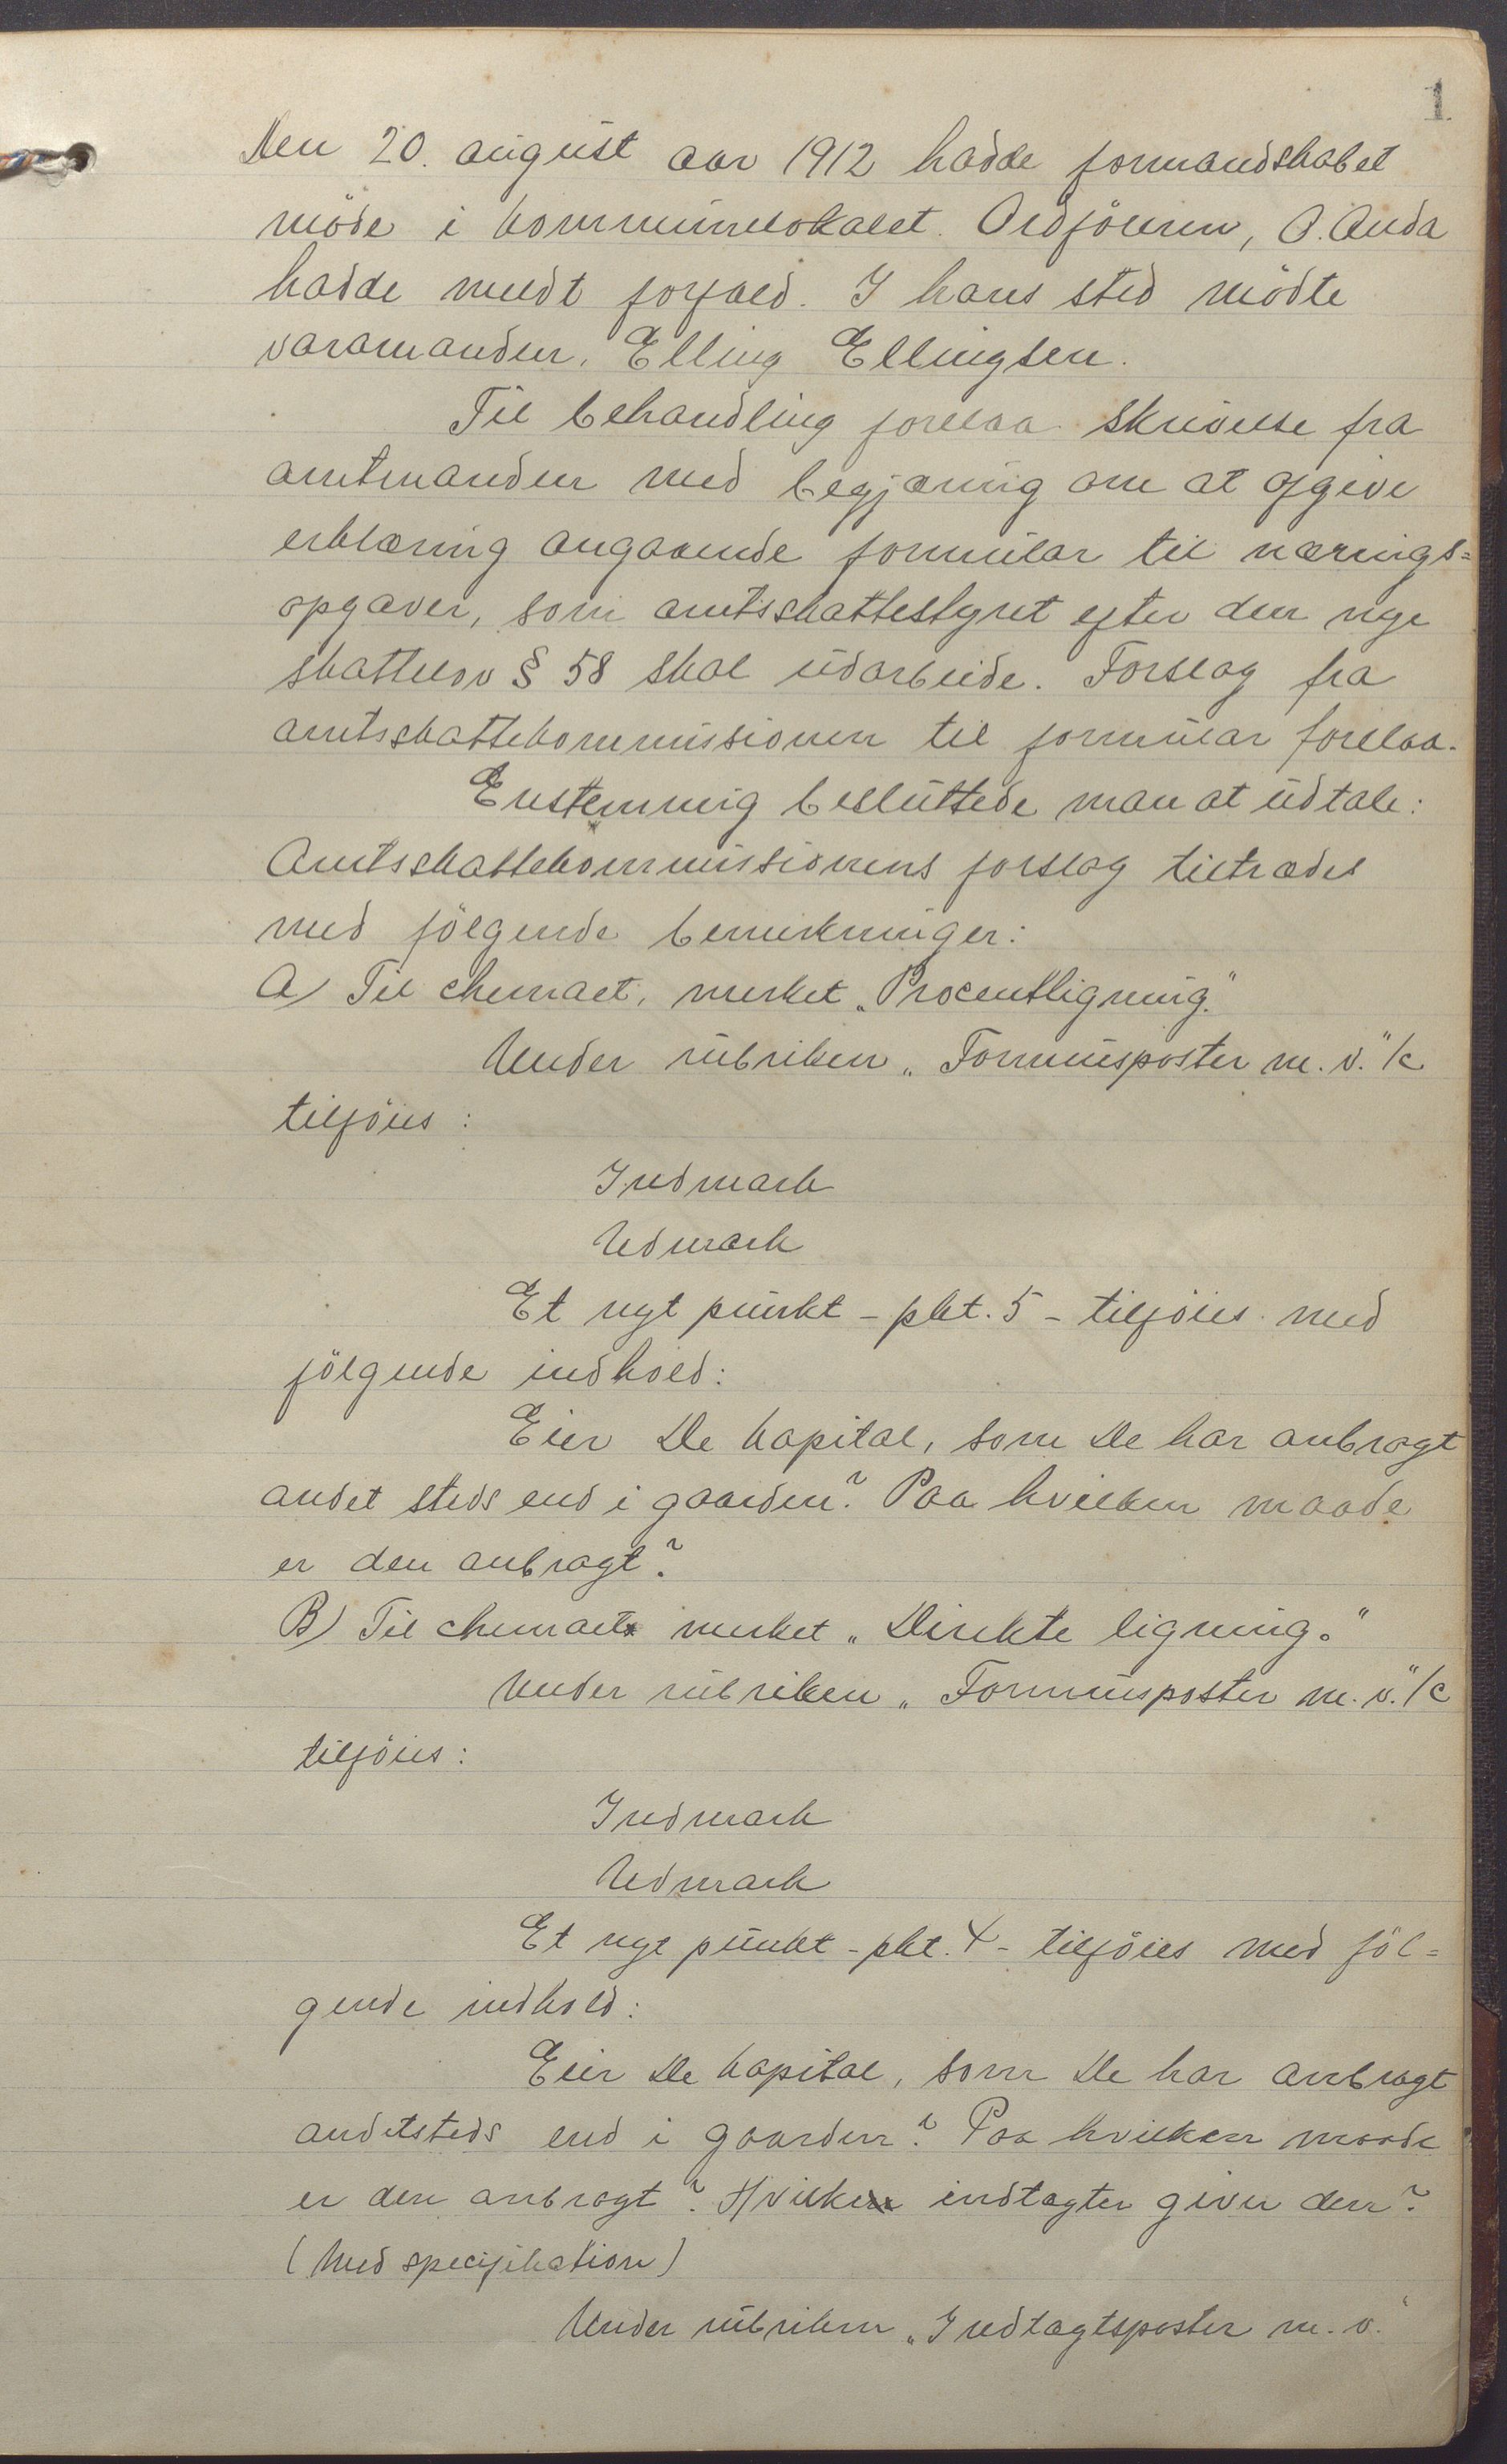 1
Den 20. august aar 1912 hadde formandskabet
möde i kommunelokalet. Ordföreren, O. Auda
hadde meldt forfald. I hans sted mödte
varamanden, Elling Ellingsen.
Til behandling forelaa skrivelse fra
amtmanden med begjæring om at afgive
erklæring angaaende formular til nærings=
opgaver, som amtsskattestyret efter den nye
skattelov § 58 skal udarbeide. Forslag fra
amtsskattekommissionen til formular forelaa.
Enstemmig besluttede man at udtale:
Amtsskattekommissionens forslag tiltrædes
med fölgende bemerkninger:
A) Til chemaet, merket „Procentligning."
Under rubriken „Formuesposter m. v." /c
tilföies:
Indmark
Udmark
Et nyt punkt - pkt. 5 - tilföies med
fölgende indhold:
Eier De kapital, som De har anbragt
andet steds end i gaarden? Paa hvilken maade
er den anbragt?
B) Til chemaet merket „Direkte ligning."
Under rubriken „Formuesposter m. v." /c
tilföies:
Indmark
Udmark
Et nyt punkt - pkt. 4 - tilföies med föl=
gende indhold:
Eier De kapital, som De har anbragt
andetsteds end i gaarden? Paa hvilken maade
er den anbragt? Hvilke indtægter giver den?
(Med specifikation)
Under rubriken „Indtægtsposter m. v."